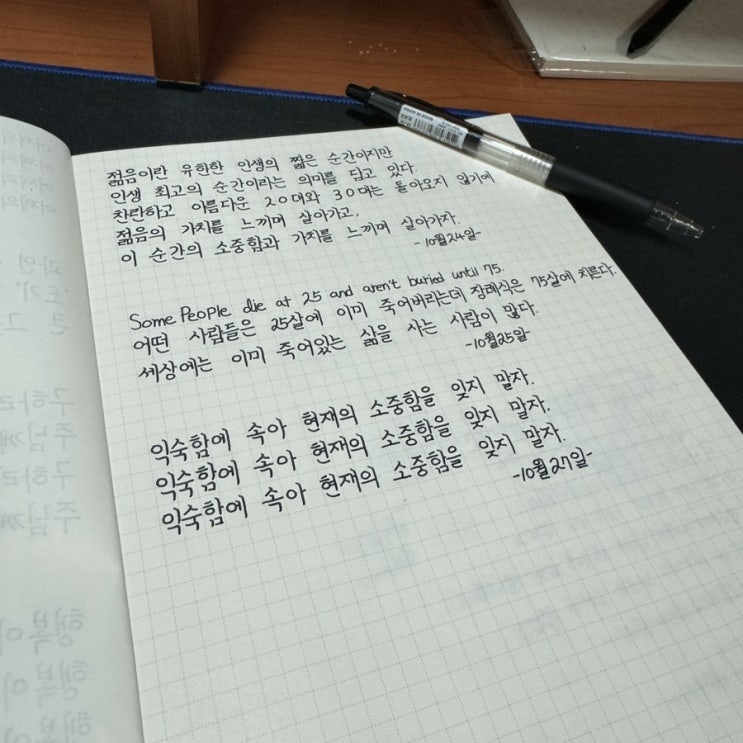 젊음이란 유한한 인생의 짧은 순간이지만
인생 최고의 순간이라는 의미를 담고 있다.
찬란하고 아름다운 20대와 30대는 돌아오지 않기에
젊음의 가치를 느끼며 살아가고,
이 순간의 소중함과 가치를 느끼며 살아가자.
-10월24일-
Some People die at 25 and aren't buried until 75.
어떤 사람들은 25살에 이미 죽어버리는데 장례식은 75살에 치른다.
세상에는 이미 죽어있는 삶을 사는 사람이 많다.
-10월25일-
익숙함에 속아 현재의 소중함을 잊지 말자.
익숙함에 속아 현재의 소중함을 잊지 말자.
익숙함에 속아 현재의 소중함을 잊지 말자.
-10월27일-